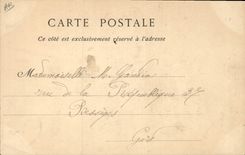 CARTE POSTALE
Ce côté est exclusivement réservé à l'adresse
Mademoiselle M.
rue de la République 37
Gard